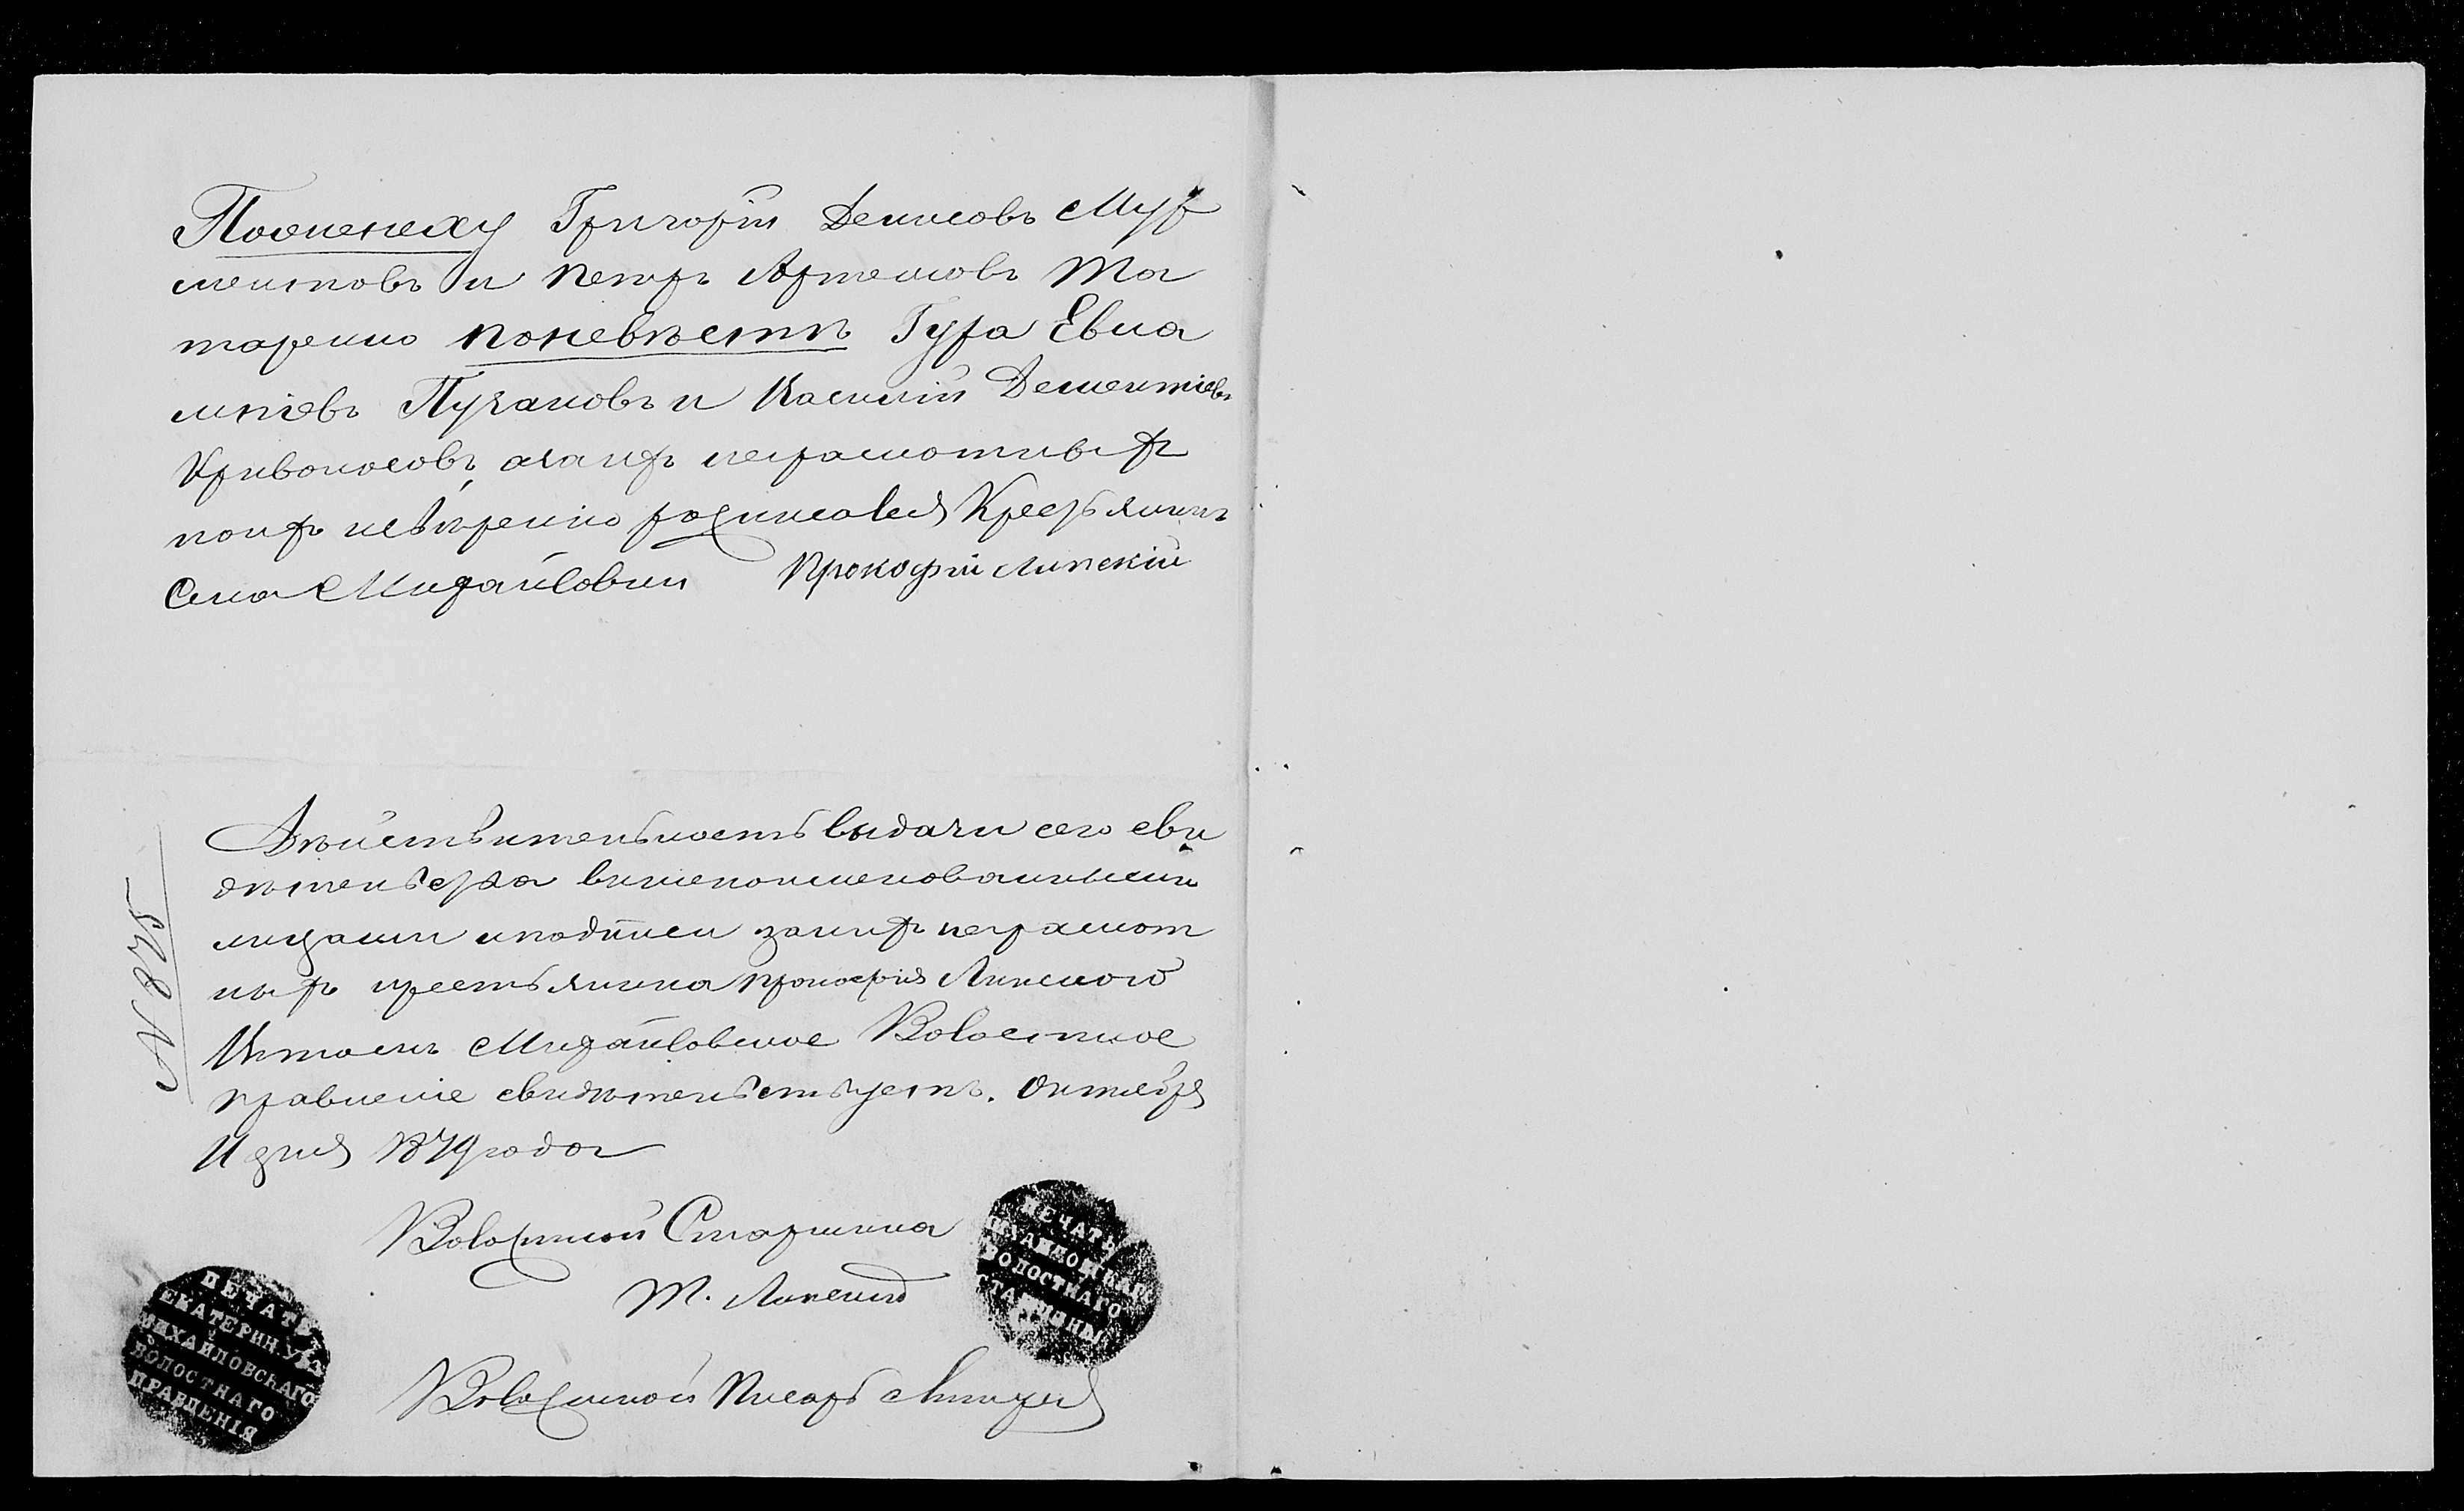 Поженеху Григорій Денисовъ Мур
ментовъ и Петръ Артемовъ Та
таренко поневѣстѣ Гура Евла
мпіевъ Пугановъ и Василій Дементіевъ
Кривоносовъ, азаихъ неграмотныхъ
поихъ иевѣренію росписався Крестьянинъ
Села Михайловки Прокофій Липскій
Дѣйствительность выдачи сего сви
дѣтельства вишепоименованными
лицами иподписи заихъ неграмот
ныхъ крестьянина Прокофія Липского
Вътомъ Михайловское Волостное
правленіе свидѣтельствуетъ. Октября
11 дня 1879 года
№ 825
Волостной Старшина
Т. Липскій
Волостной Писарь
ПЕЧАТЬ
МИХАЙЛОВСКАГО
ВОЛОСТНАГО
СТАРШИНЫ
ПЕЧАТЬ
ЕКАТЕРИН. УѢЗ.
МИХАЙЛОВСКАГО
ВОЛОСТНАГО
ПРАВЛЕНІЯ